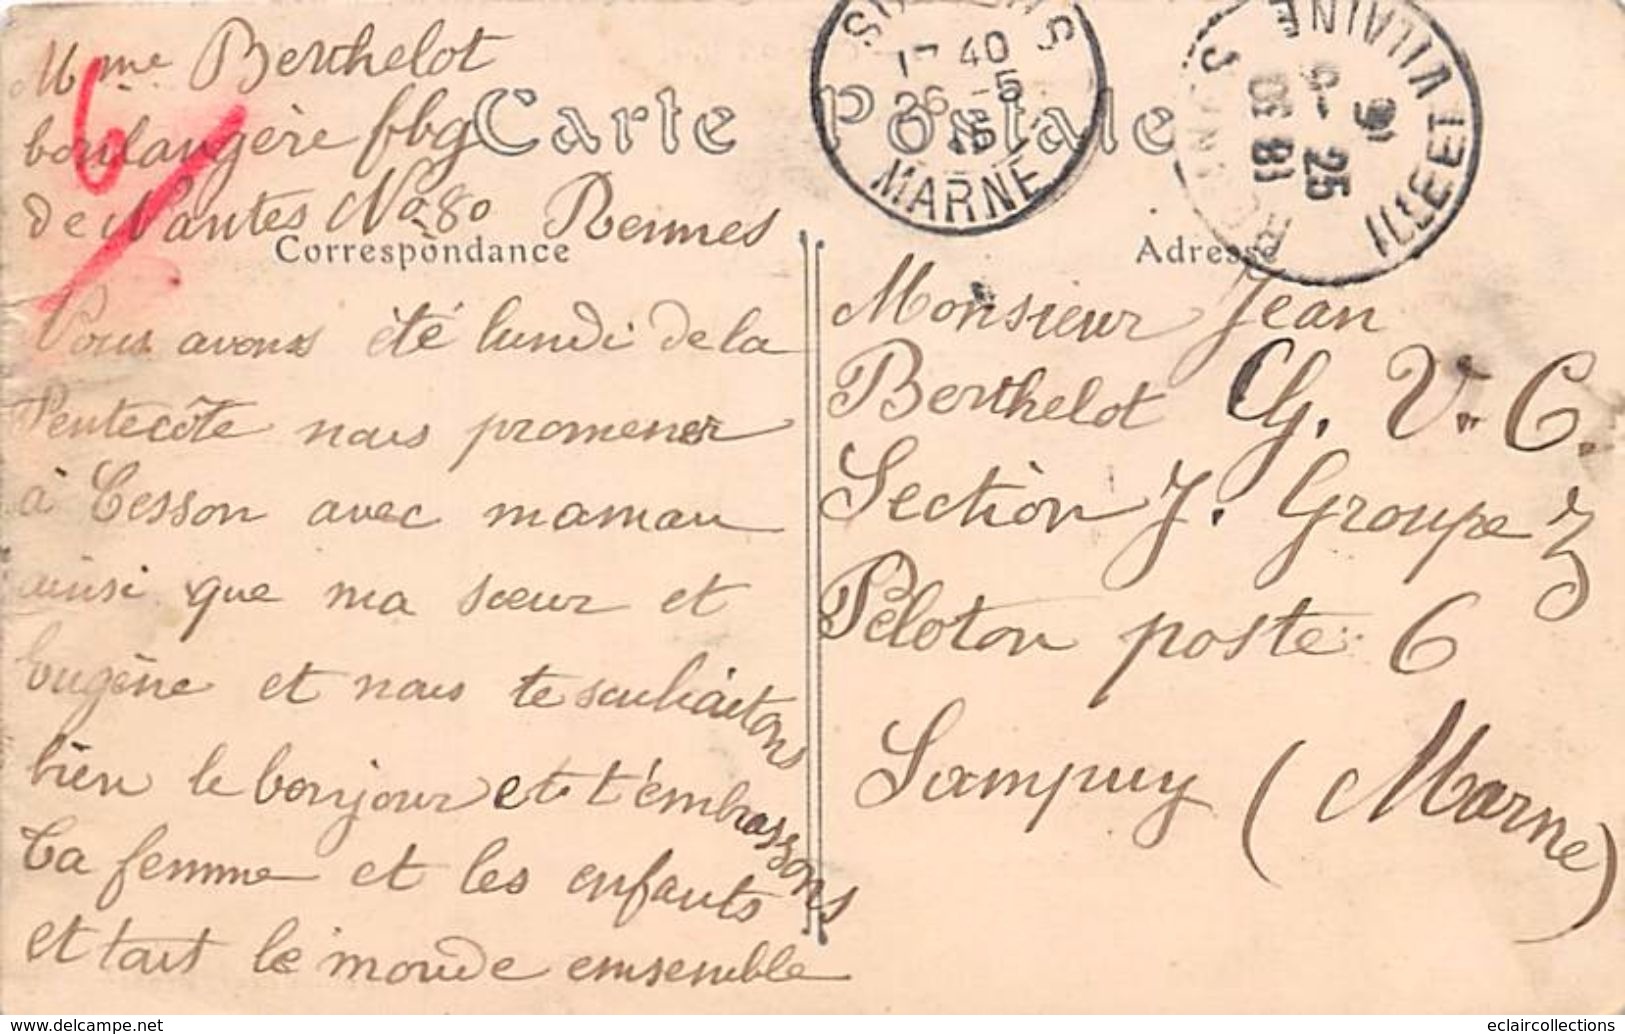 Mme Berthelot
boulangère fbg
de Nantes No 80 Rennes
Carte Postale
Correspondance
Nous avons été lundi de la
Pentecôte nous promener
à Cesson avec maman
ainsi que ma sœur et
Eugène et nous te souhaitons
bien le bonjour et t'embrassons
Ta femme et les enfants
et tout le monde ensemble
40
26-5
MARNE
ILLE ET VILAINE
25-5
Adresse
Monsieur Jean
Berthelot G. V. C.
Section J. Groupe 3
Péloton poste 6
Sompuy (Marne)
6
www.delcampe.net
eclaircollections